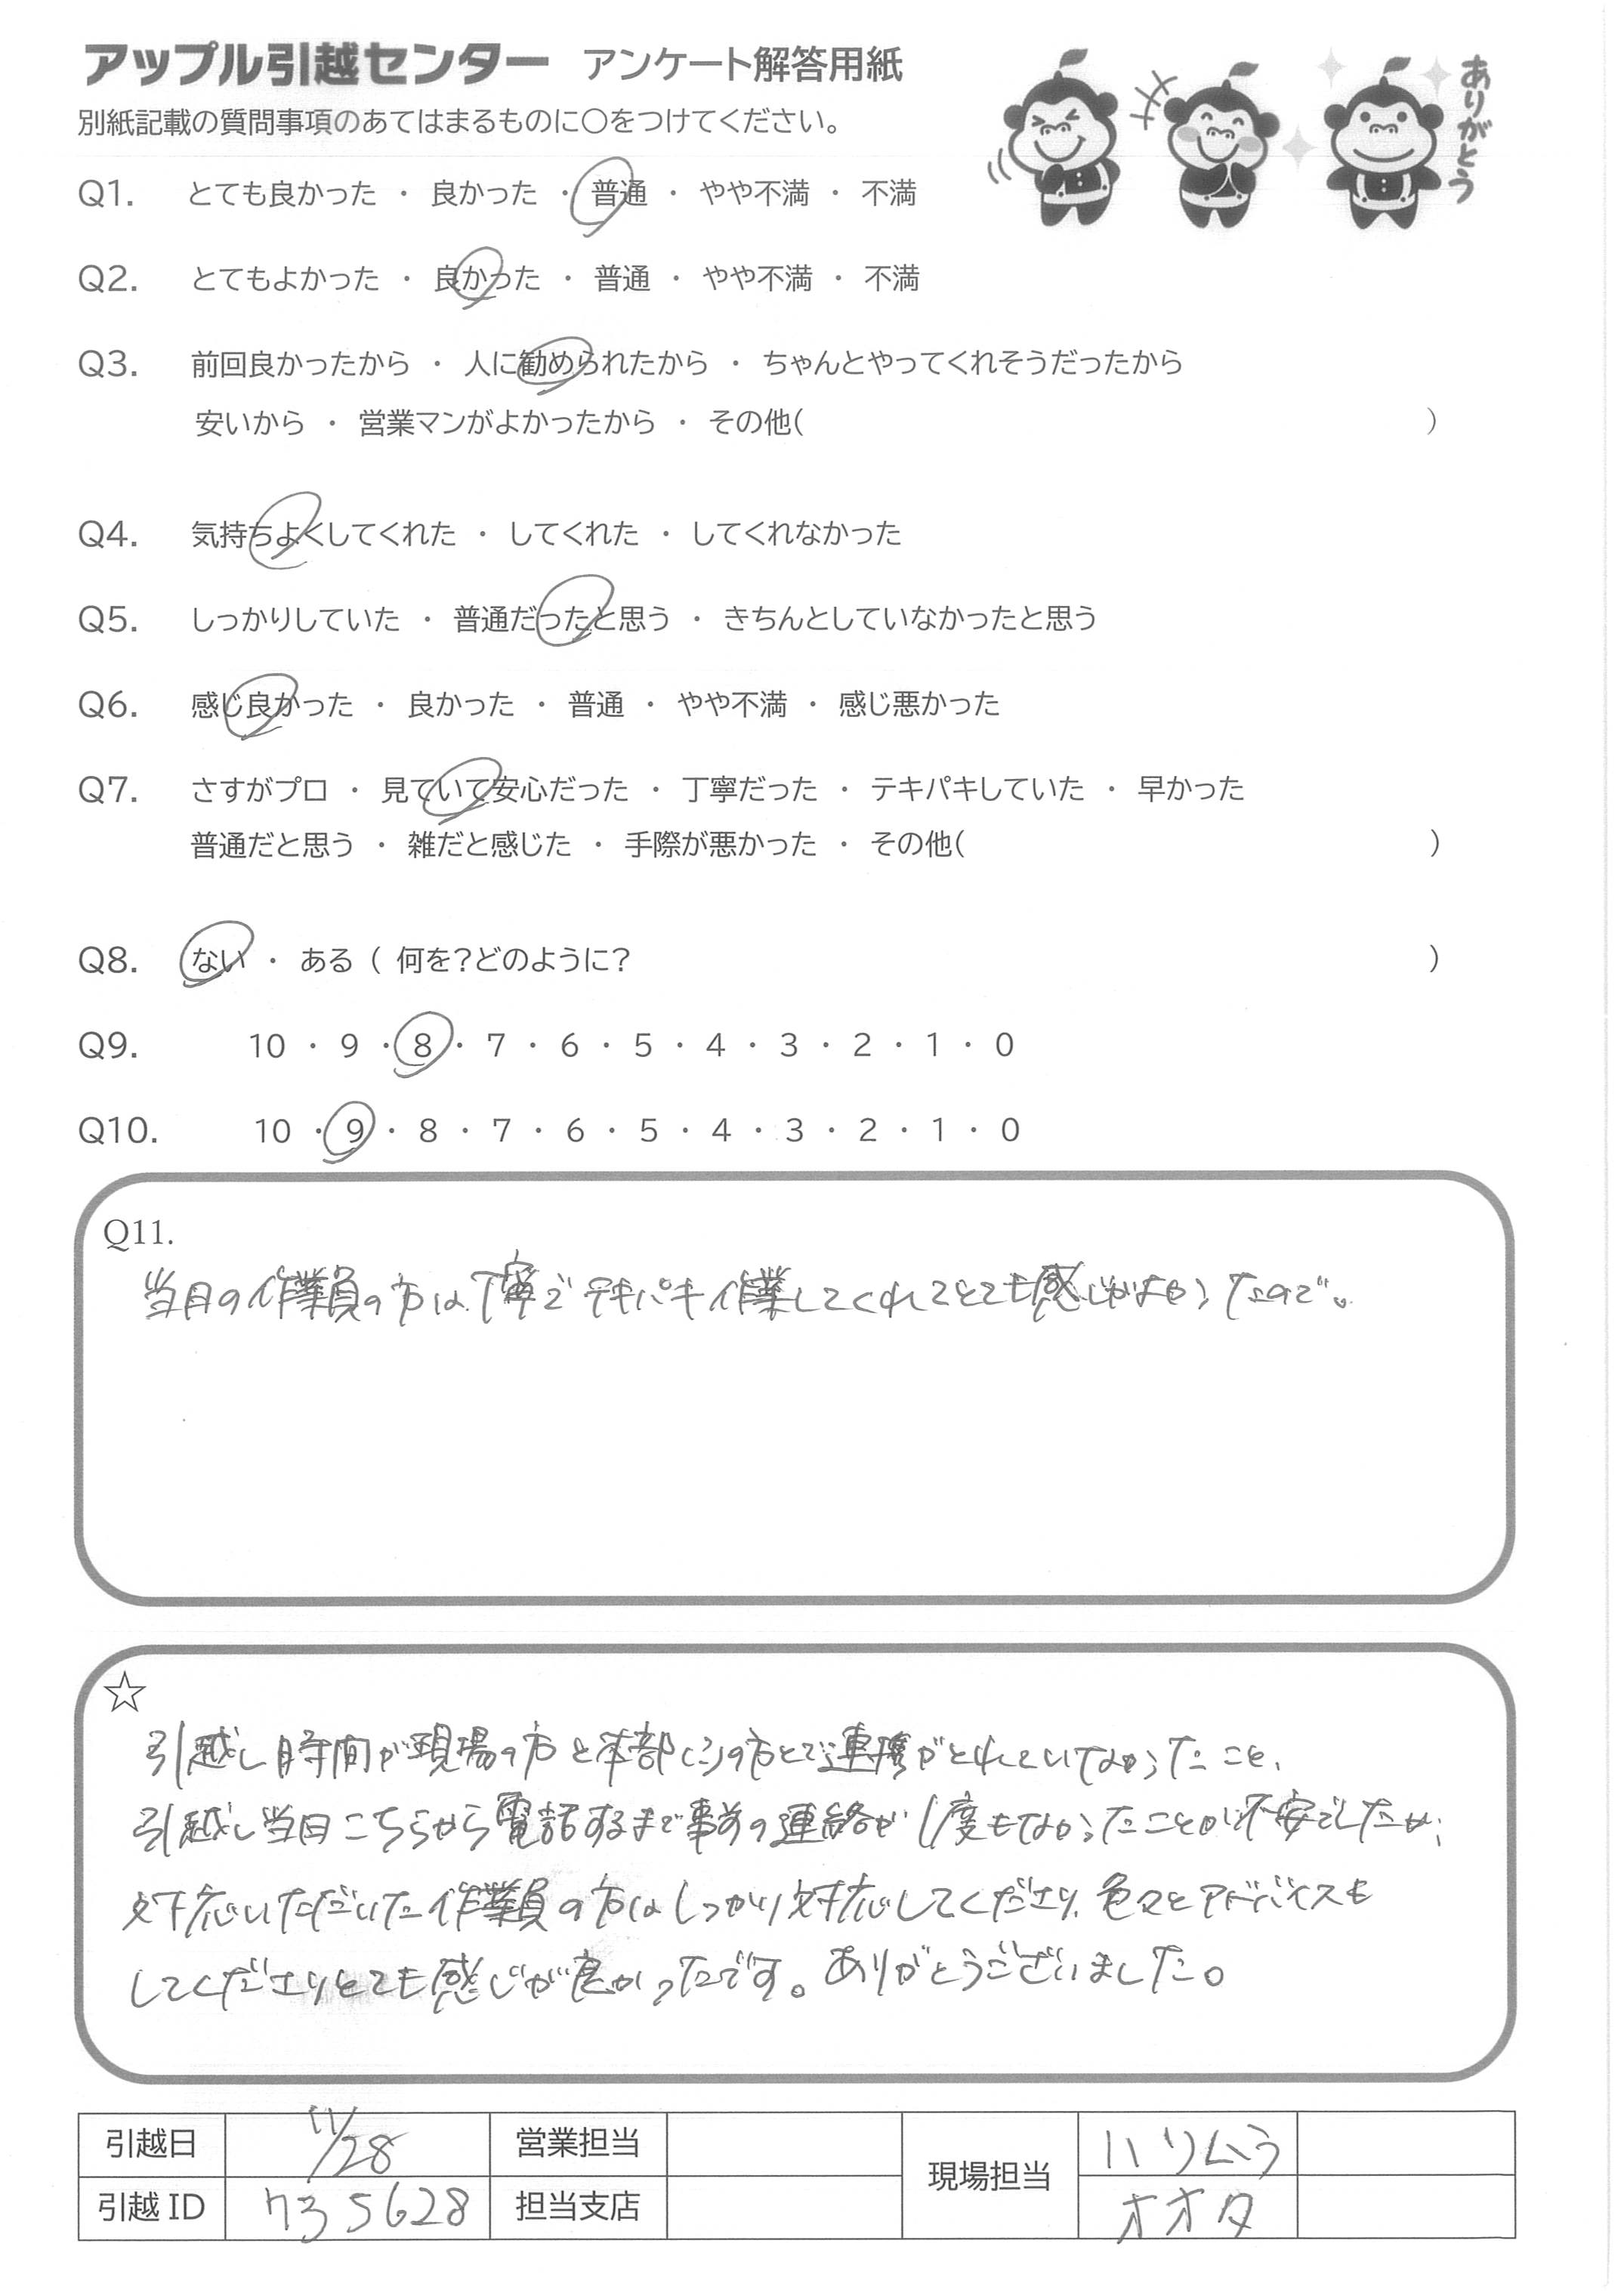 アップル引越センター アンケート解答用紙
別紙記載の質問事項のあてはまるものに〇をつけてください。
ありがとう
Q1. とても良かった ・ 良かった ・ 普通 ・ やや不満 ・ 不満
Q2. とてもよかった ・ 良かった ・ 普通 ・ やや不満 ・ 不満
Q3. 前回良かったから ・ 人に勧められたから ・ ちゃんとやってくれそうだったから
安いから ・ 営業マンがよかったから ・ その他( )
Q4. 気持ちよくしてくれた ・ してくれた ・ してくれなかった
Q5. しっかりしていた ・ 普通だったと思う ・ きちんとしていなかったと思う
Q6. 感じ良かった ・ 良かった ・ 普通 ・ やや不満 ・ 感じ悪かった
Q7. さすがプロ ・ 見ていて安心だった ・ 丁寧だった ・ テキパキしていた ・ 早かった
普通だと思う ・ 雑だと感じた ・ 手際が悪かった ・ その他( )
Q8. ない ・ ある ( 何を?どのように? )
Q9. 10 ・ 9 ・ 8 ・ 7 ・ 6 ・ 5 ・ 4 ・ 3 ・ 2 ・ 1 ・ 0
Q10. 10 ・ 9 ・ 8 ・ 7 ・ 6 ・ 5 ・ 4 ・ 3 ・ 2 ・ 1 ・ 0
Q11.
当日の作業員の方は丁寧でテキパキ作業してくれてとても感じがよかったので。
☆
引越し時間が現場の方と本部の方とで連携がとれていなかったこと、
引越し当日こちらから電話するまで事前の連絡が1度もなかったことが不安でしたが、
対応いただいた作業員の方はしっかり対応してくださり、色々とアドバイスも
してくださりとても感じが良かったです。ありがとうございました。
引越日 11/28 営業担当 現場担当 ハリムラ
引越ID 735628 担当支店 オオタ